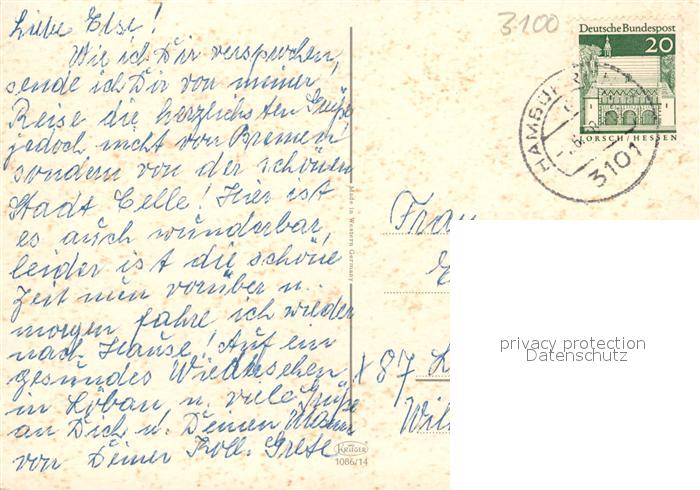 Liebe Else!
Wie ich Dir versprochen,
sende ich Dir von meiner
Reise die herzlichsten Grüße
jedoch nicht von Bremen
sondern von der schönen
Stadt Celle! Hier ist
es auch wunderbar,
leider ist die schöne
Zeit nun vorüber u.
morgen fahre ich wieder
nach Hause! Auf ein
gesundes Wiedersehen
in Löbau u. viele Grüße
an Dich u. Deinen Mann
von Deiner Koll. Grete
Made in Western Germany
KRÜGER
1086/14
3100
Deutsche Bundespost
20
LORSCH/HESSEN
HAMBÜ
3101
Frau
X 87 L
Wil
privacy protection
Datenschutz